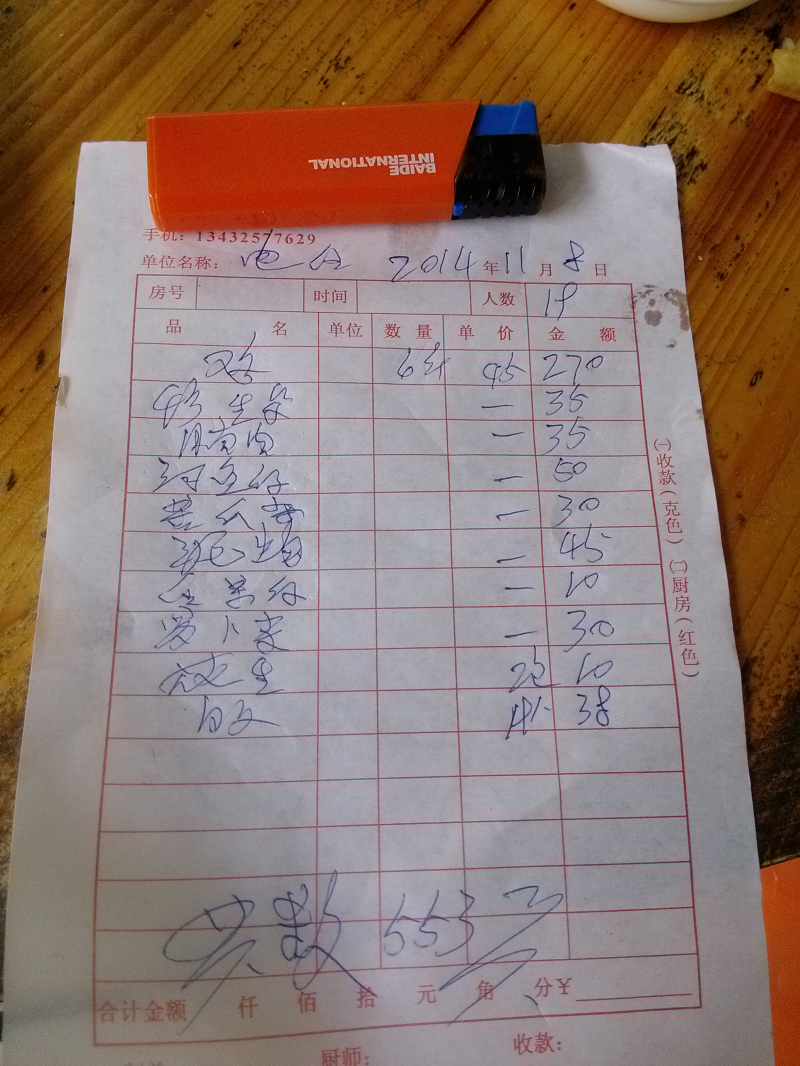 BAIDE
INTERNATIONAL
手机：13432577629
单位名称： 电台 2014年11月8日
房号 时间 人数 19
品名 单位 数量 单价 金额
鸡 6斤 45 270
生菜 一 35
一 35
河鱼仔 一 50
苦瓜 一 30
一 45
一 10
萝卜 一 30
花生 2 10
白饭 38
共数 553元
合计金额 仟 佰 拾 元 角 分¥
厨师： 收款：
㈠收款（克色） ㈡厨房（红色）